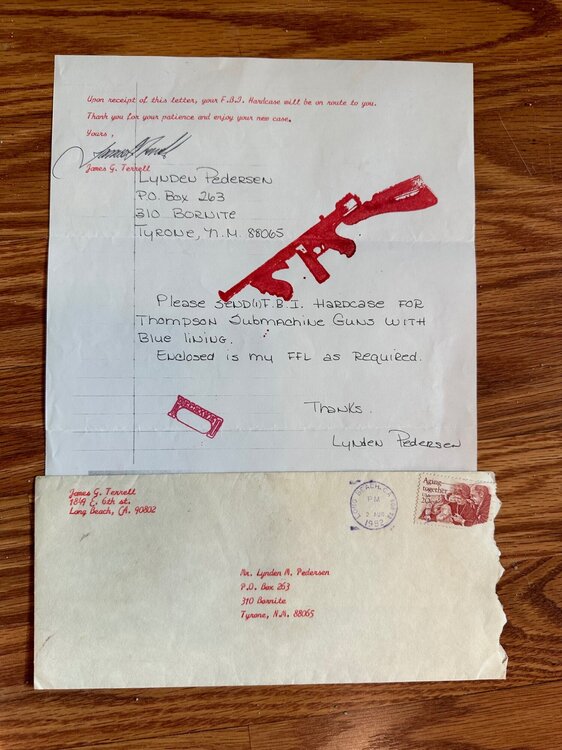 Upon receipt of this letter, your F.B.I. Hardcase will be on route to you.
Thank you for your patience and enjoy your new case.
Yours,
James G. Terrell
Lynden Pedersen
P.O. Box 263
310 Bornite
Tyrone, N.M. 88065
Please send (1) F.B.I. Hardcase for
Thompson Submachine Guns with
Blue lining.
Enclosed is my FFL as required.
Thanks.
Lynden Pedersen
James G. Terrell
1849 E. 6th st.
Long Beach, CA. 90802
LONG BEACH, CA
PM
2 AUG
1982
Aging
together
Mr. Lynden M. Pedersen
P.O. Box 263
310 Bornite
Tyrone, N.M. 88065